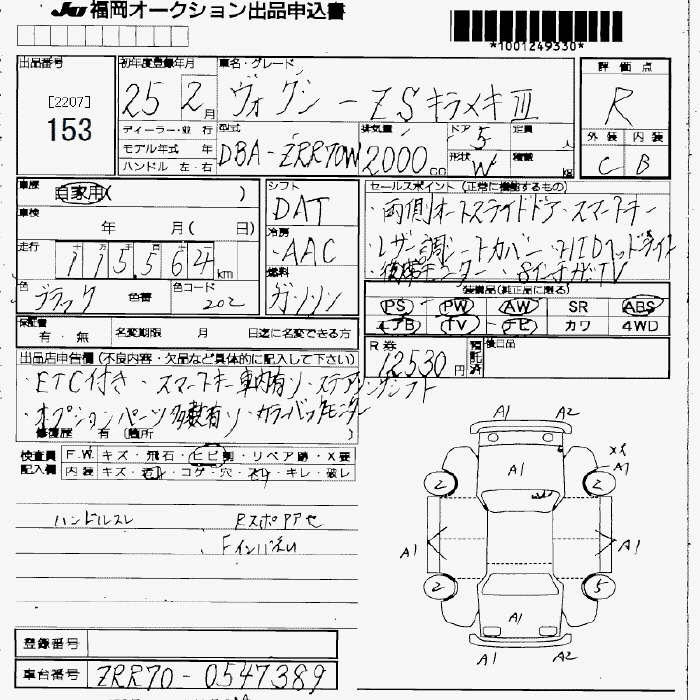 JU 福岡オークション出品申込書
*1001249330*
出品番号 初年度登録年月 車名・グレード 評価点
[2207]
153
25 2月 ヴォクシー ZSキラメキⅢ R
ディーラー・並行 型式 排気量 ドア 5 定員 人 外装 内装
モデル年式 年 DBA-ZRR70W 2000cc C B
ハンドル 左・右 形状 W 積載 kg
車歴 自家用( ) シフト DAT セールスポイント (正常に機能するもの)
車検 年 月( 日) ・両側オートスライドドア・スマートキー
走行 十 万 千 百 十 一 冷房 AAC ・レザー調シートカバー・HIDヘッドライト
115564km ・後席モニター・8インチナビTV
燃料 ガソリン
色 ブラック 色替 色コード 202 装備品(純正品に限る)
PS PW AW SR ABS
エアB TV ナビ カワ 4WD
保証書 有・無 名変期限 月 日迄に名変できる方
R券 12530円 預託済 後日品
出品店申告欄 (不良内容・欠品など具体的に記入して下さい)
・ETC付き・スマートキー車内有り・ステアリングシフト
・オプションパーツ多数有り・カラーバックモニター
修復歴 有 (箇所 )
検査員記入欄 F.W. キズ・飛石・ヒビ割・リペア跡・X要
内装 キズ・汚れ・コゲ・穴・スリ・キレ・破レ
ハンドルスレ Rスポアアセ
Fインパネ
A1 A2
A1 A1
2 2
A1 A1
2 5
A1
A1 A2
登録番号
車台番号 ZRR70-0547389